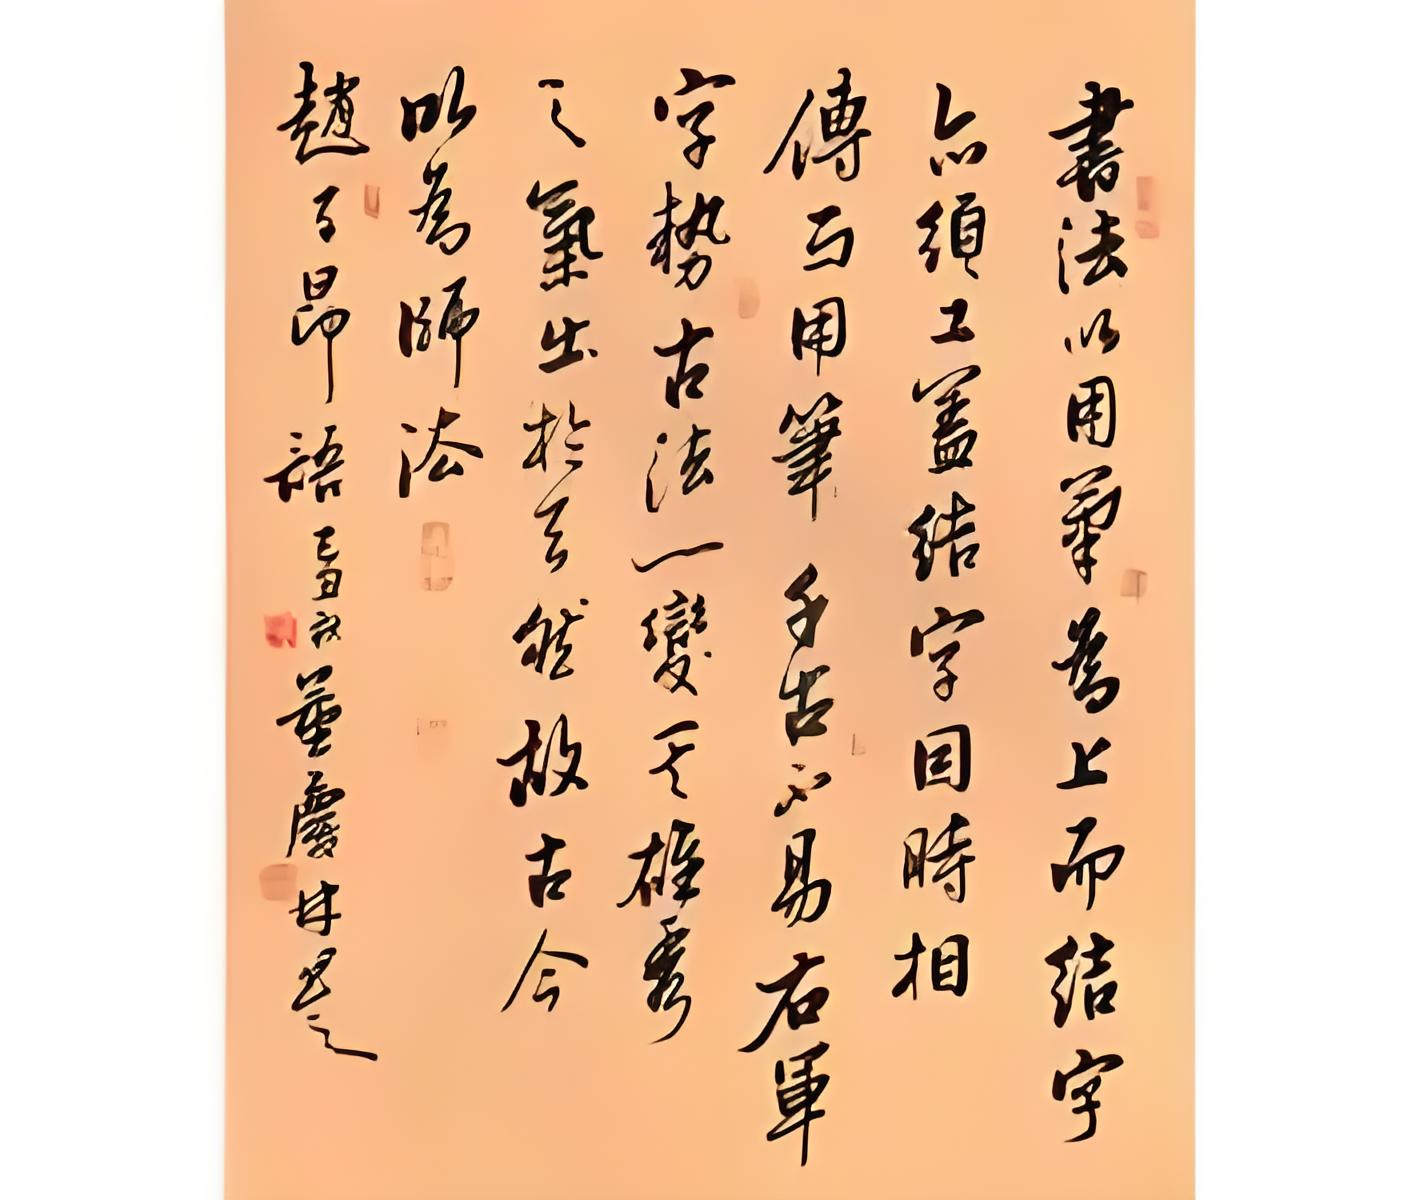 書法以用筆為上而結字
亦須工蓋結字因時相
傳用筆千古不易右軍
字勢古法一變其雄秀
之氣出於天然故古今
以為師法
趙子昂語 董慶